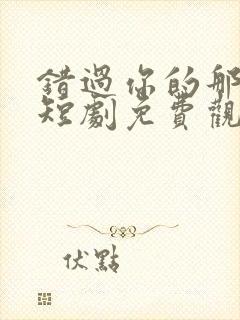 錯過你的那
短劇免費觀
伏點